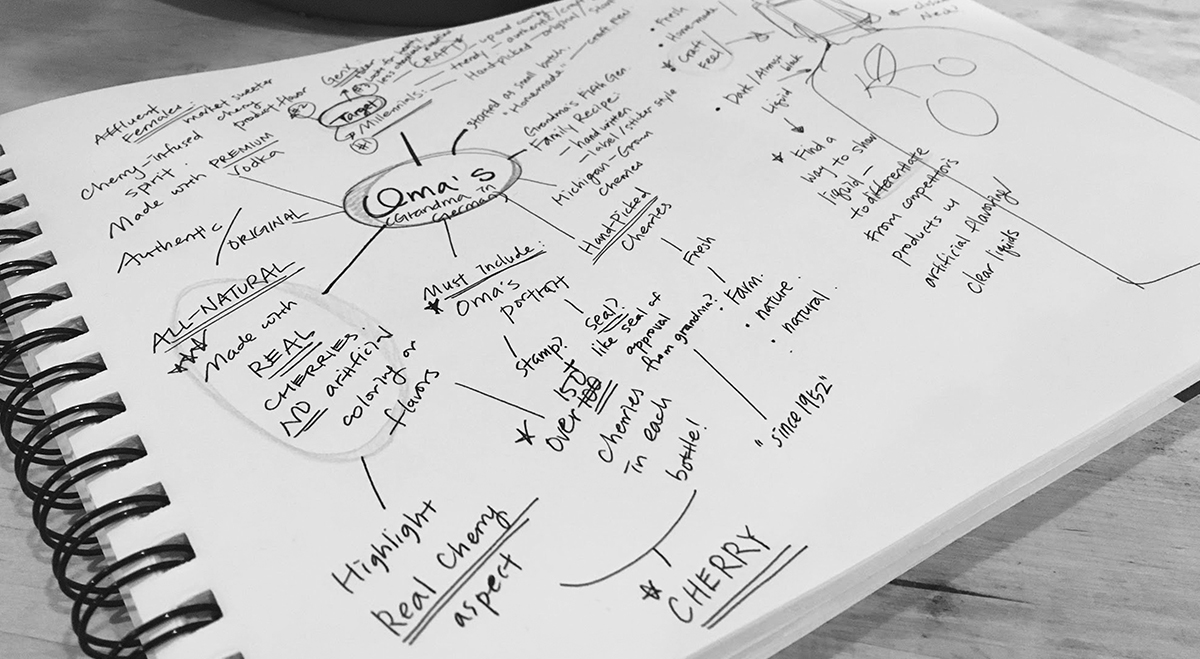 Affluent
Females:
market sweeter
cherry
product
Cherry-infused
spirit.
Made with PREMIUM
Vodka
Authentic / ORIGINAL
GenX:
CRAFT
Target
Millennials:
trendy - authentic
Hand-picked - original
started as small batch.
"Homemade" - craft feel
Oma's
(Grandma in
german)
Grandma's Fifth Gen.
Family Recipe:
- handwritten
- label/sticker style
Michigan-Grown
Cherries
Hand-Picked
Cherries
Fresh
Farm.
• nature
• natural.
Must Include:
Oma's
portrait
Stamp?
Seal?
like seal of
approval
from grandma?
"since 1952"
ALL-NATURAL
Made with
REAL
CHERRIES.
NO artificial
coloring or
flavors
150+
over 100
cherries
in each
bottle!
Highlight
Real Cherry
aspect
CHERRY
• Fresh
• Homemade/
Craft
Feel
• Dark/Almost
black
Liquid
Find a
way to show
liquid -
to differentiate
from competitors
products w/
artificial flavoring/
clear liquids